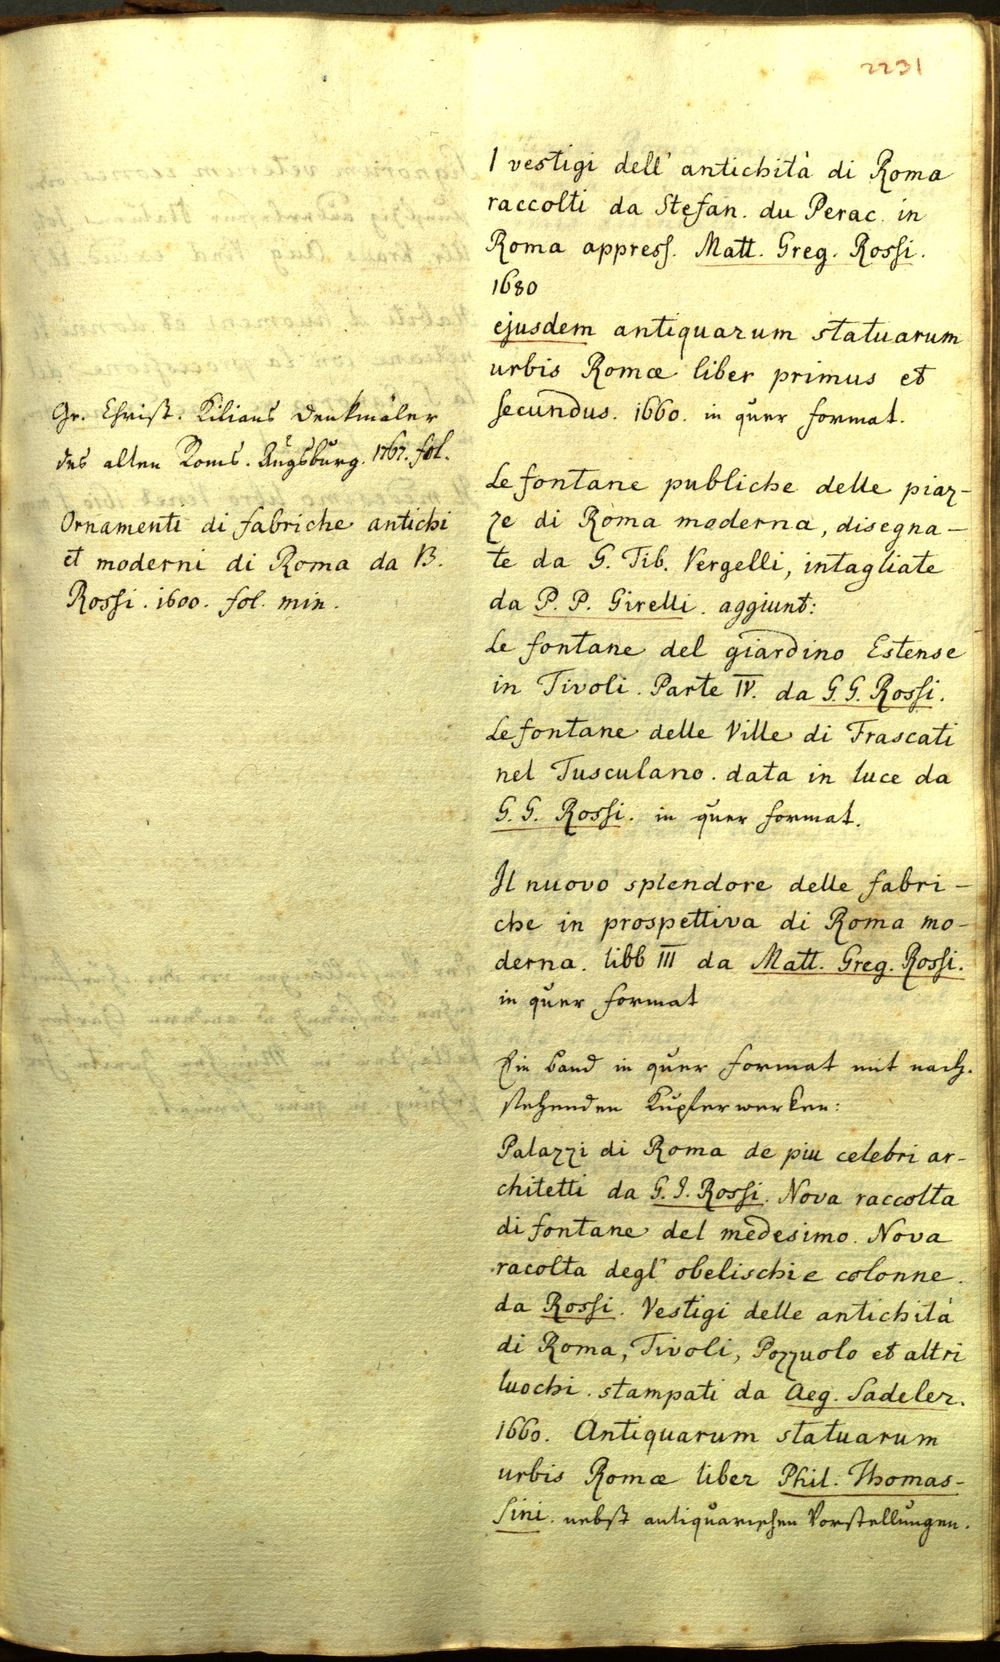 2231
I vestigi dell' antichità di Roma
raccolti da Stefan. du Perac. in
Roma appress. Matt. Greg. Rossi.
1680
ejusdem antiquarum statuarum
urbis Romæ liber primus et
secundus. 1660. in quer format.
Le fontane publiche delle piaz-
ze di Roma moderna, disegna-
te da G. Tib. Vergelli, intagliate
da P. P. Girelli. aggiunt:
Le fontane del giardino Estense
in Tivoli. Parte IV. da G. G. Rossi.
Le fontane delle Ville di Frascati
nel Tusculano. data in luce da
G. G. Rossi. in quer format.
Il nuovo splendore delle fabri-
che in prospettiva di Roma mo-
derna. libb III da Matt. Greg. Rossi.
in quer format
Ein Band in quer format mit nach-
stehenden Kupferwerken:
Palazzi di Roma de piu celebri ar-
chitetti da G. J. Rossi. Nova raccolta
di fontane del medesimo. Nova
racolta degl' obelischi e colonne.
da Rossi. Vestigi delle antichità
di Roma, Tivoli, Pozzuolo et altri
luochi. stampati da Aeg. Sadeler.
1660. Antiquarum statuarum
urbis Romæ liber Phil. Thomas-
sini. nebst antiquarischen Vorstellungen.
Gr. Christ. Kilians Denkmäler
des alten Roms. Augsburg. 1767. fol.
Ornamenti di fabriche antichi
et moderni di Roma da B.
Rossi. 1600. fol. min.